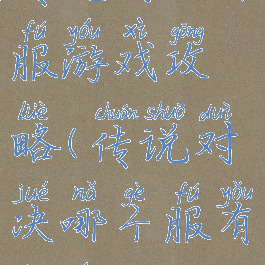 fú yóu xì gōng
服游戏攻
lüè chuán shuō duì
略(传说对
jué nǎ gè fú yǒu
决哪个服有